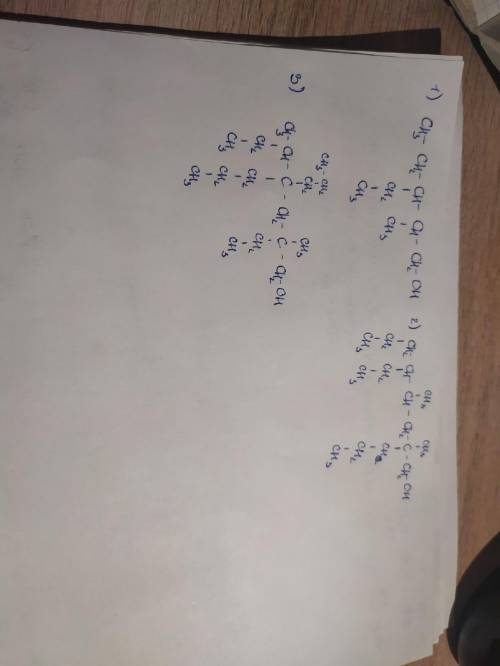 1) CH₃ - CH₂ - CH - CH - CH₂OH
CH₂ CH₃
CH₃
2)
CH₃ CH₃
CH₂ - CH - CH - CH₂ - C - CH₂OH
CH₂ CH₂ CH₂
CH₃ CH₃ CH₂
CH₃
3)
CH₃-CH₂
CH₂ CH₃
CH₃ CH - C - CH₂ - C - CH₂OH
CH₂ CH₂ CH₂
CH₃ CH₂ CH₃
CH₃